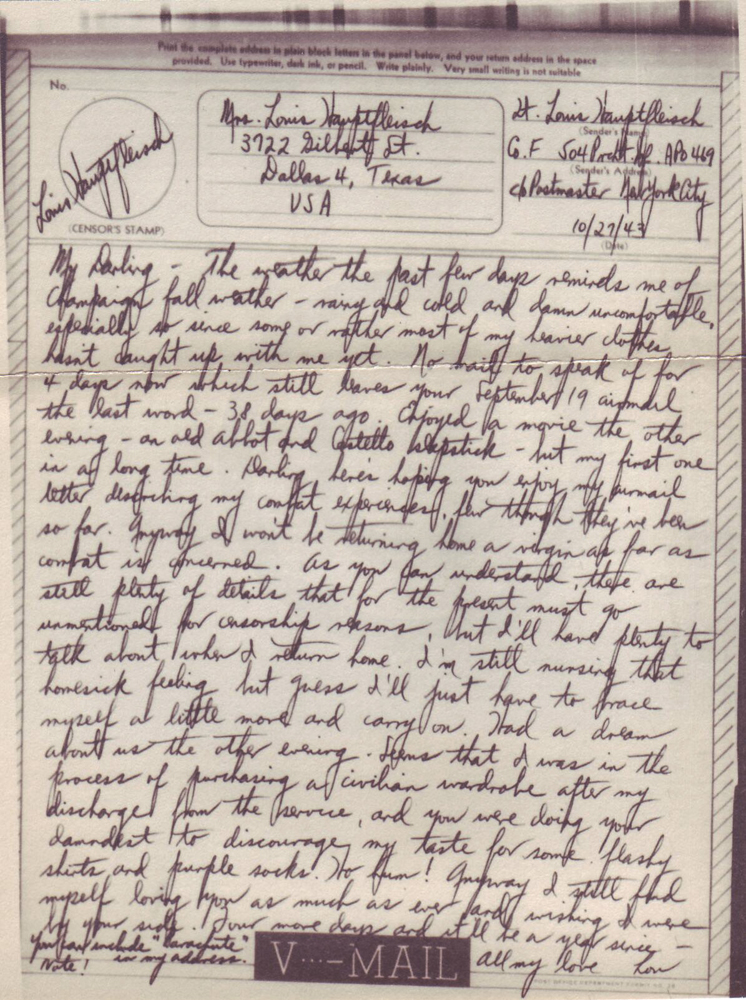 Print the complete address in plain block letters in the panel below, and your return address in the space
provided. Use typewriter, dark ink, or pencil. Write plainly. Very small writing is not suitable
No.
Louis Hauptfleisch
(CENSOR'S STAMP)
Mrs. Louis Hauptfleisch
3722 Gilbert St.
Dallas 4, Texas
USA
Lt. Louis Hauptfleisch
(Sender's Name)
Co. F 504 Prcht. Inf. APO 469
(Sender's Address)
c/o Postmaster New York City
10/27/43
(Date)
My Darling - The weather the past few days reminds me of
Champaign fall weather - rainy and cold and damn uncomfortable,
especially so since some or rather most of my heavier clothes
hasn't caught up with me yet. No mail to speak of for
4 days now which still leaves your September 19 airmail
the last word - 38 days ago. Enjoyed a movie the other
evening - an old Abbot and Costello slapstick - but my first one
in a long time. Darling here's hoping you enjoy my airmail
letter describing my combat experiences, few though they've been
so far. Anyway I won't be returning home a virgin as far as
combat is concerned. As you can understand, there are
still plenty of details that for the present must go
unmentioned for censorship reasons, but I'll have plenty to
talk about when I return home. I'm still nursing that
homesick feeling but guess I'll just have to brace
myself a little more and carry on. Had a dream
about us the other evening. Seems that I was in the
process of purchasing a civilian wardrobe after my
discharge from the service, and you were doing your
damndest to discourage my taste for some flashy
shirts and purple socks. Ho hum! Anyway I still find
myself loving you as much as ever and wishing I were
by your side. Four more days and it'll be a year since -
All my love Lou
you can include "Parachute"
in my address.
Note!
V···—MAIL
POST OFFICE DEPARTMENT PERMIT NO.